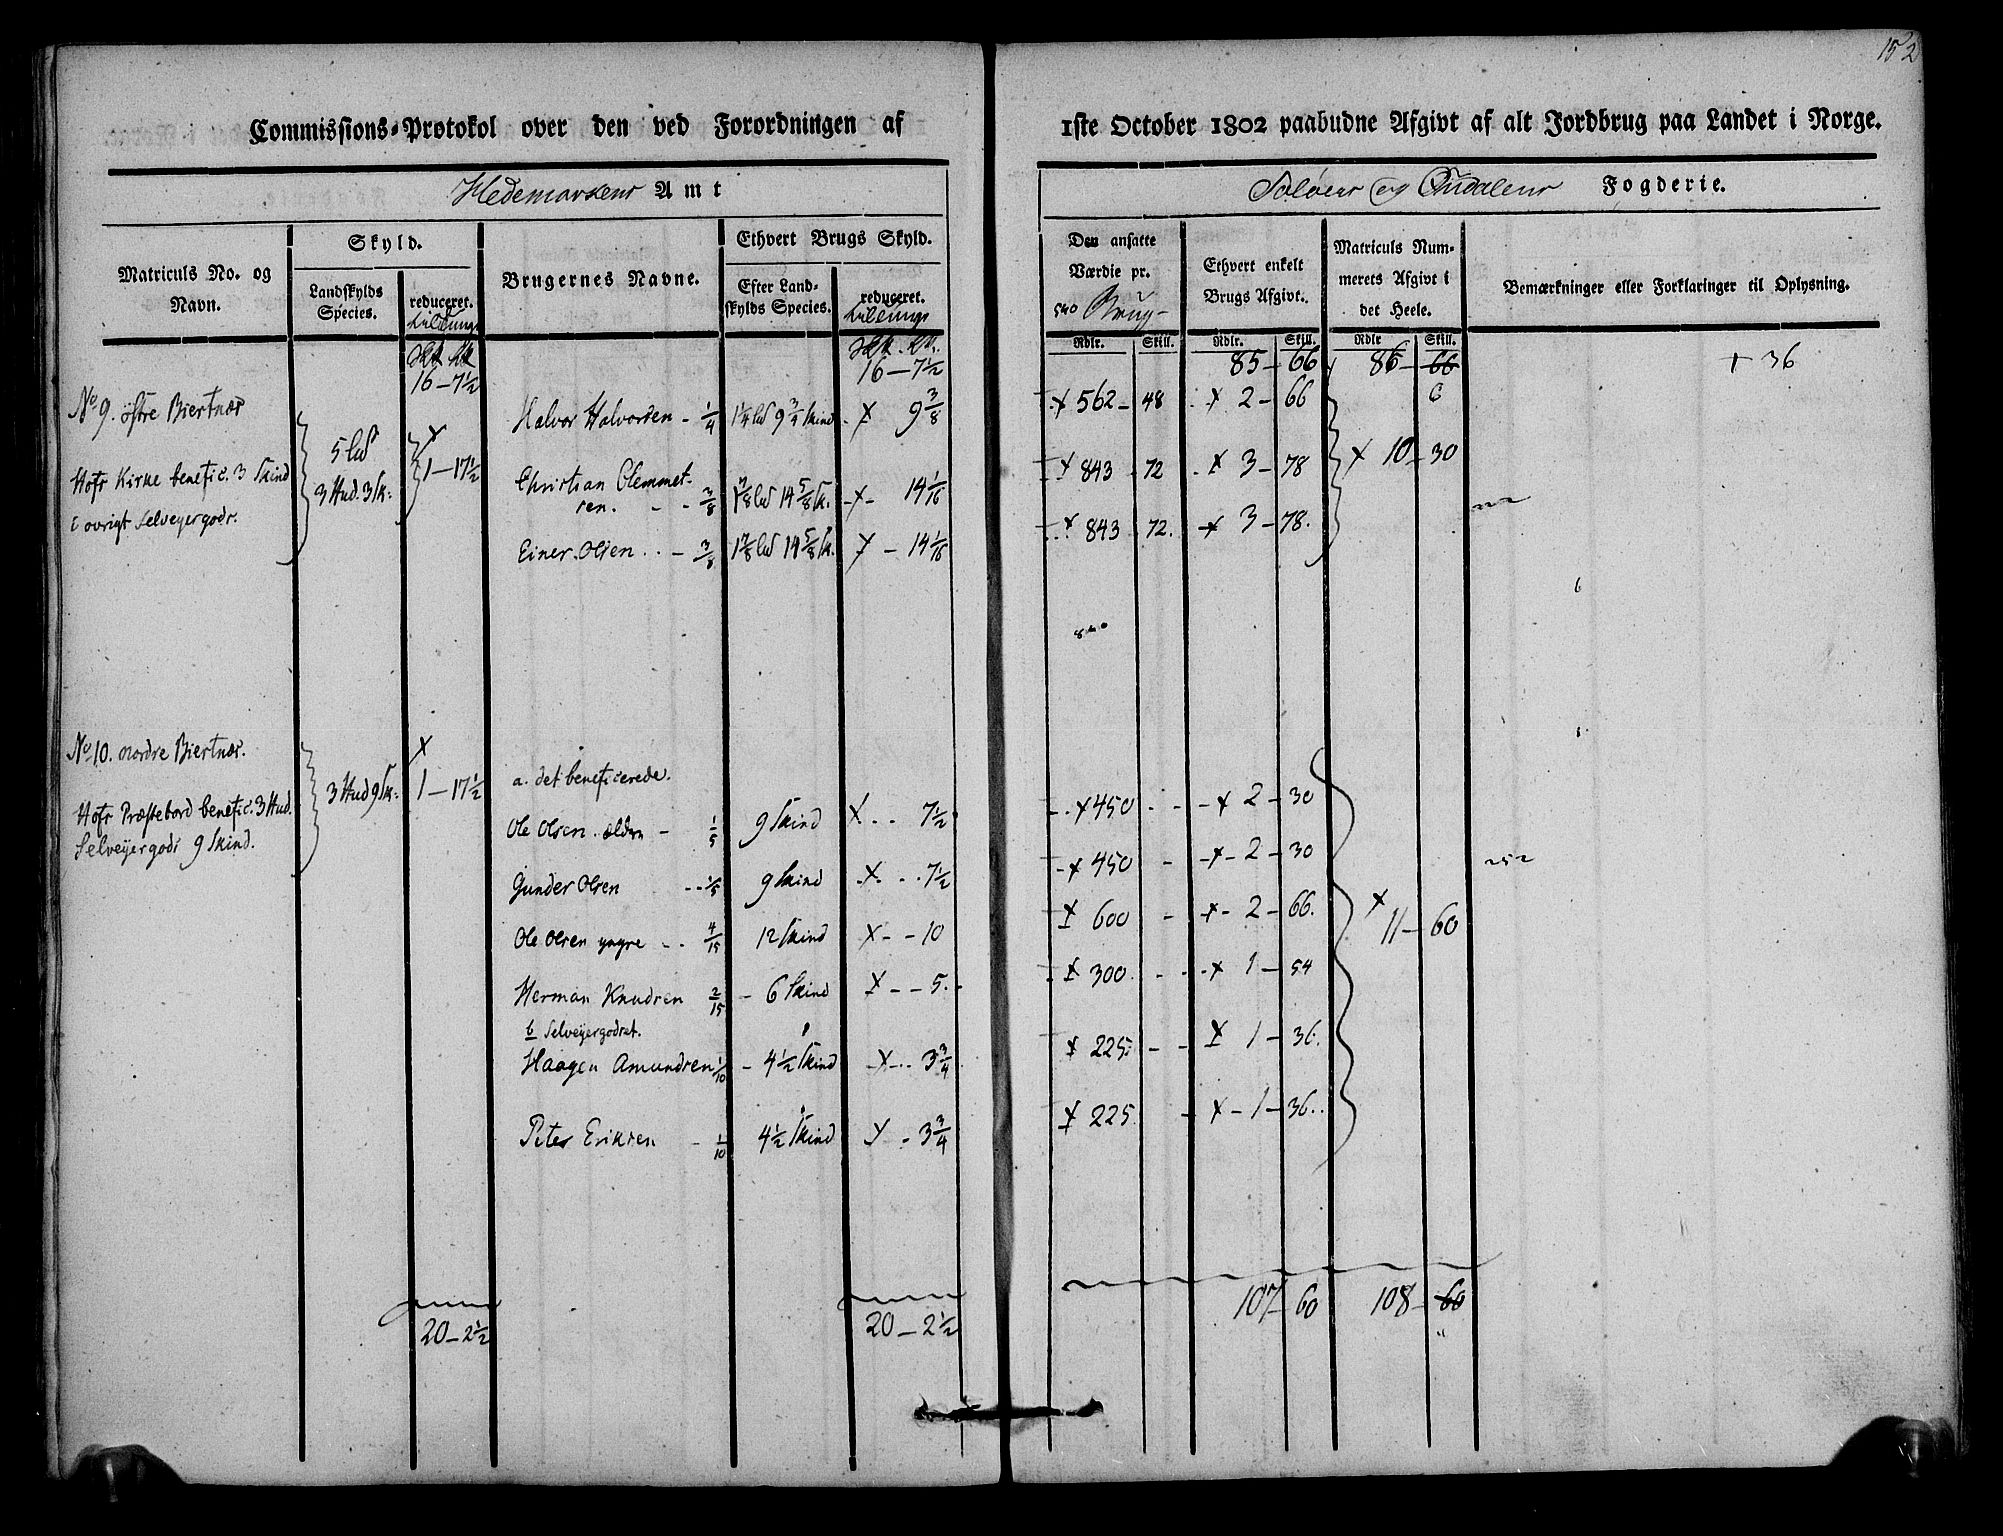 152
Commissions-Protokol over den ved Forordningen af 1ste October 1802 paabudne Afgivt af alt Jordbrug paa Landet i Norge.
Hedemarkens Amt
Soløers og Fogderie.
Matriculs No. og Navn.
Skyld.
Landskylds Species.
reduceret.
Brugernes Navne.
Ethvert Brugs Skyld.
Efter Landskylds Species.
reduceret.
Den ansatte Værdie pr.
Brug
Ethvert enkelt Brugs Afgivt.
Matriculs Nummerets Afgivt i det Heele.
Bemærkninger eller Forklaringer til Oplysning.
Rdlr. Skill. Rdlr. Skill. Rdlr Skill.
16 - 7½ 16 - 7½ 85 - 66 86 - 66 + 36
6
No 9. østre Biertnæs
Hofs Kirke benefic. 3 Skind
i ovrigt Selveyergods.
3 Hud. 3 Sk:
1 - 17½ x 10 - 30
Halvor Halvorsen - 1/4 9¾ Skind x 9 3/8 x 562 - 48 x 2 - 66
Christian Clemmetsen. - - 3/8 14 5/8 Sk. x 14 1/16 x 843 - 72 x 3 - 78
Einer Olsen . . - 3/8 14 5/8 Sk. x - 14 1/16 x 843 72. x 3 - 78.
No 10. nordre Biertnæs.
Hofs Præstebord benefic. 3 Hud.
Selveyergods 9 Skind.
3 Hud 9 Sk:
x
1 - 17½ x 11 - 60
a. det beneficerede.
Ole Olsen ældre - 1/5 9 Skind x . . 7½ x 450 - - x 2 - 30
Gunder Olsen - - 1/5 9 Skind x . . . 7½ x 450 - x - 2 - 30
Ole Olsen yngre - . 4/15 12 Skind x - - 10 x 600 - x - 2 - 66.
Herman Knudsen 2/15 - 6 Skind x - - 5. x 300. - - x 1 - 54
b Selveyergodset.
Haagen Amundsen 1/10 - 4½ Skind x - . . 3¾ x 225. - - x 1 - 36.
Peter Eriksen - 1/10 4½ Skind x . - 3¾ x 225. - x - 1 - 36. .
20 - 2½ 20 - 2½ 107 - 60 108 - 60
"